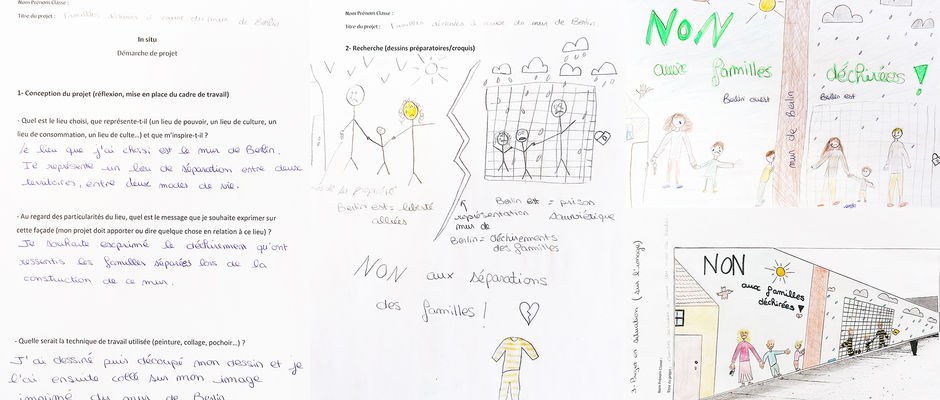 Nom Prénom Classe :
Titre du projet : Familles divisées à cause du mur de Berlin
In situ
Démarche de projet
1- Conception du projet (réflexion, mise en place du cadre de travail)
- Quel est le lieu choisi, que représente-t-il (un lieu de pouvoir, un lieu de culture, un
lieu de consommation, un lieu de culte...) et que m'inspire-t-il ?
Le lieu que j'ai choisi est le mur de Berlin.
Il représente un lieu de séparation entre deux
territoires, entre deux modes de vie.
- Au regard des particularités du lieu, quel est le message que je souhaite exprimer sur
cette façade (mon projet doit apporter ou dire quelque chose en relation à ce lieu) ?
Je souhaite exprimé le déchirement qu'ont
ressentis les familles séparées lors de la
construction de ce mur.
- Quelle serait la technique de travail utilisée (peinture, collage, pochoir...) ?
J'ai dessiné puis découpé mon dessin et je
l'ai ensuite collé sur mon image
imprimé du mur de Berlin
Nom Prénom Classe :
Titre du projet : Familles divisées à cause du mur de Berlin
2- Recherche (dessins préparatoires/croquis)
= liberté
alliées
Berlin est = prison
soviétique
représentation
mur de
Berlin = déchirements
des familles
NON aux séparations
des familles !
NON
aux familles déchirées !
Berlin ouest
mur de Berlin
Berlin est
3- Projet en situation (sur l'image)
Nom Prénom Classe :
Titre du projet :
NON
aux familles
déchirées !